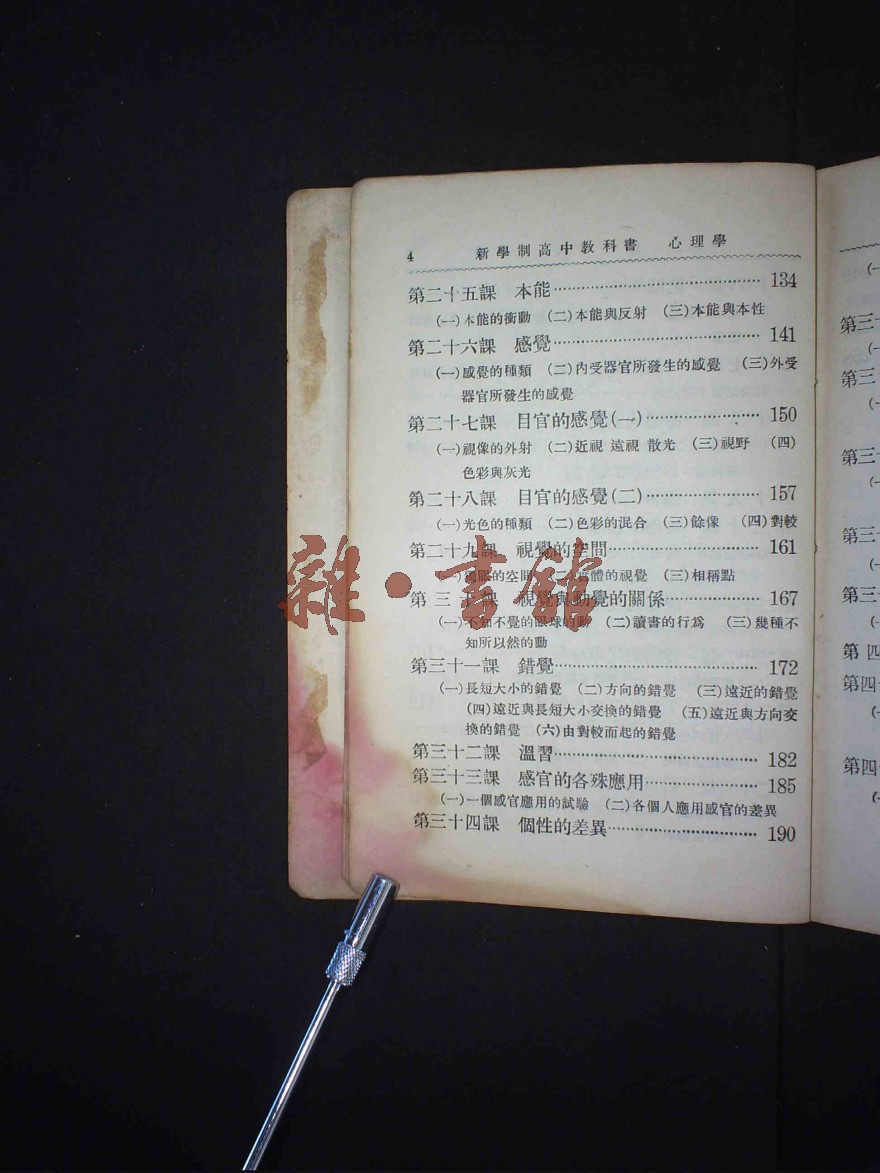 4 新學制高中教科書 心理學
第二十五課 本能 134
(一)本能的衝動 (二)本能與反射 (三)本能與本性
第二十六課 感覺 141
(一)感覺的種類 (二)內受器官所發生的感覺 (三)外受
器官所發生的感覺
第二十七課 目官的感覺(一) 150
(一)視像的外射 (二)近視 遠視 散光 (三)視野 (四)
色彩與灰光
第二十八課 目官的感覺(二) 157
(一)光色的種類 (二)色彩的混合 (三)餘像 (四)對較
第二十九課 視覺的空間 161
(一)獨眼的空間 (二)實體的視覺 (三)相稱點
第三十課 視覺與動覺的關係 167
(一)不知不覺的眼球的動 (二)讀書的行爲 (三)幾種不
知所以然的動
第三十一課 錯覺 172
(一)長短大小的錯覺 (二)方向的錯覺 (三)遠近的錯覺
(四)遠近與長短大小交換的錯覺 (五)遠近與方向交
換的錯覺 (六)由對較而起的錯覺
第三十二課 溫習 182
第三十三課 感官的各殊應用 185
(一)一個感官應用的試驗 (二)各個人應用感官的差異
第三十四課 個性的差異 190
雜·書館
(一
第三十
(一
第三
(一
第三十
(一
第三十
(一
第三十
(一
第四
第四十
(一
第四十
(一